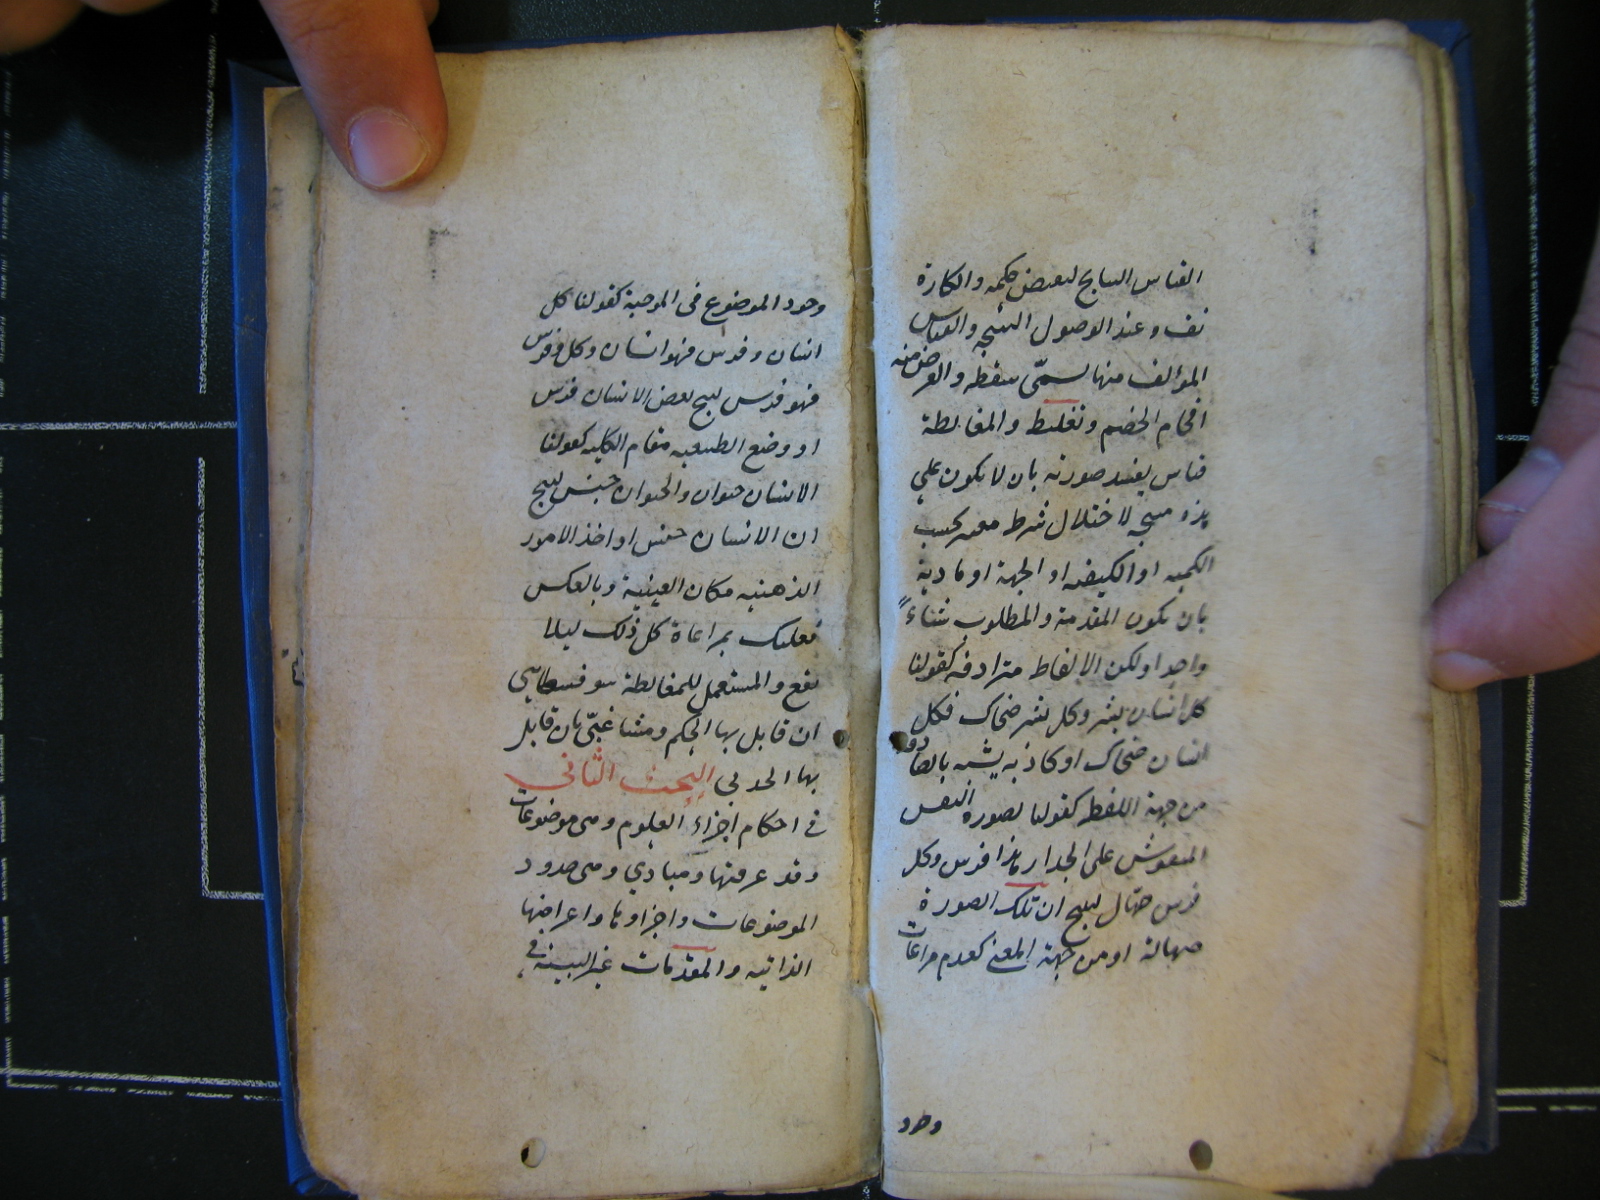 القياس السابح لبعض حكمه والكارة
نف وعند الوصول النتيجه والقياس
المؤلف منها يسمّى سفطه والغرض منه
افحام الخصم وتغليط والمغالطة
قياس يفسد صورته بان لا يكون علي
هذه منتجه لاختلال شرط معتبر بحسب
الكميه او الكيفيه او الجهة او مادية
بان يكون المقدمة والمطلوب شئاءً
واحدا ولكن الالفاظ مترادفه كقولنا
كل انسان بشر وكل بشر ضحاك فكل
انسان ضحاك او كاذبه يشبه بالصادقه
من جهة اللفظ كقولنا لصورة الفرس
المنقوش على الجدار هذا فرس وكل
فرس صهال لينتج ان تلك الصورة
صهالة او من جهة المعنى كعدم مراعات
وجود
وجود الموضوع فى الموجبة كقولنا كل
انسان وفرس فهو انسان وكل وفرس
فهو فرس لينتج بعض الانسان فرس
او وضع الطبيعيه مقام الكليه كقولنا
الانسان حيوان والحيوان جنس لينتج
ان الانسان جنس او اخذ الامور
الذهنيه مكان العينية وبالعكس
فعليك بمراعاة كل ذلك ليلا
تقع والمستعمل للمغالطة سوفسطايي
ان قابل بها الحكيم ومشاغبىّ ان قابل
بها الجدلي البحث الثاني
في احكام اجزاء العلوم ومى موضوعات
وقد عرفتها ومبادي ومى حدود
الموضوعات واجزاوها واعراضها
الذاتيه والمقدمات غير البينة في